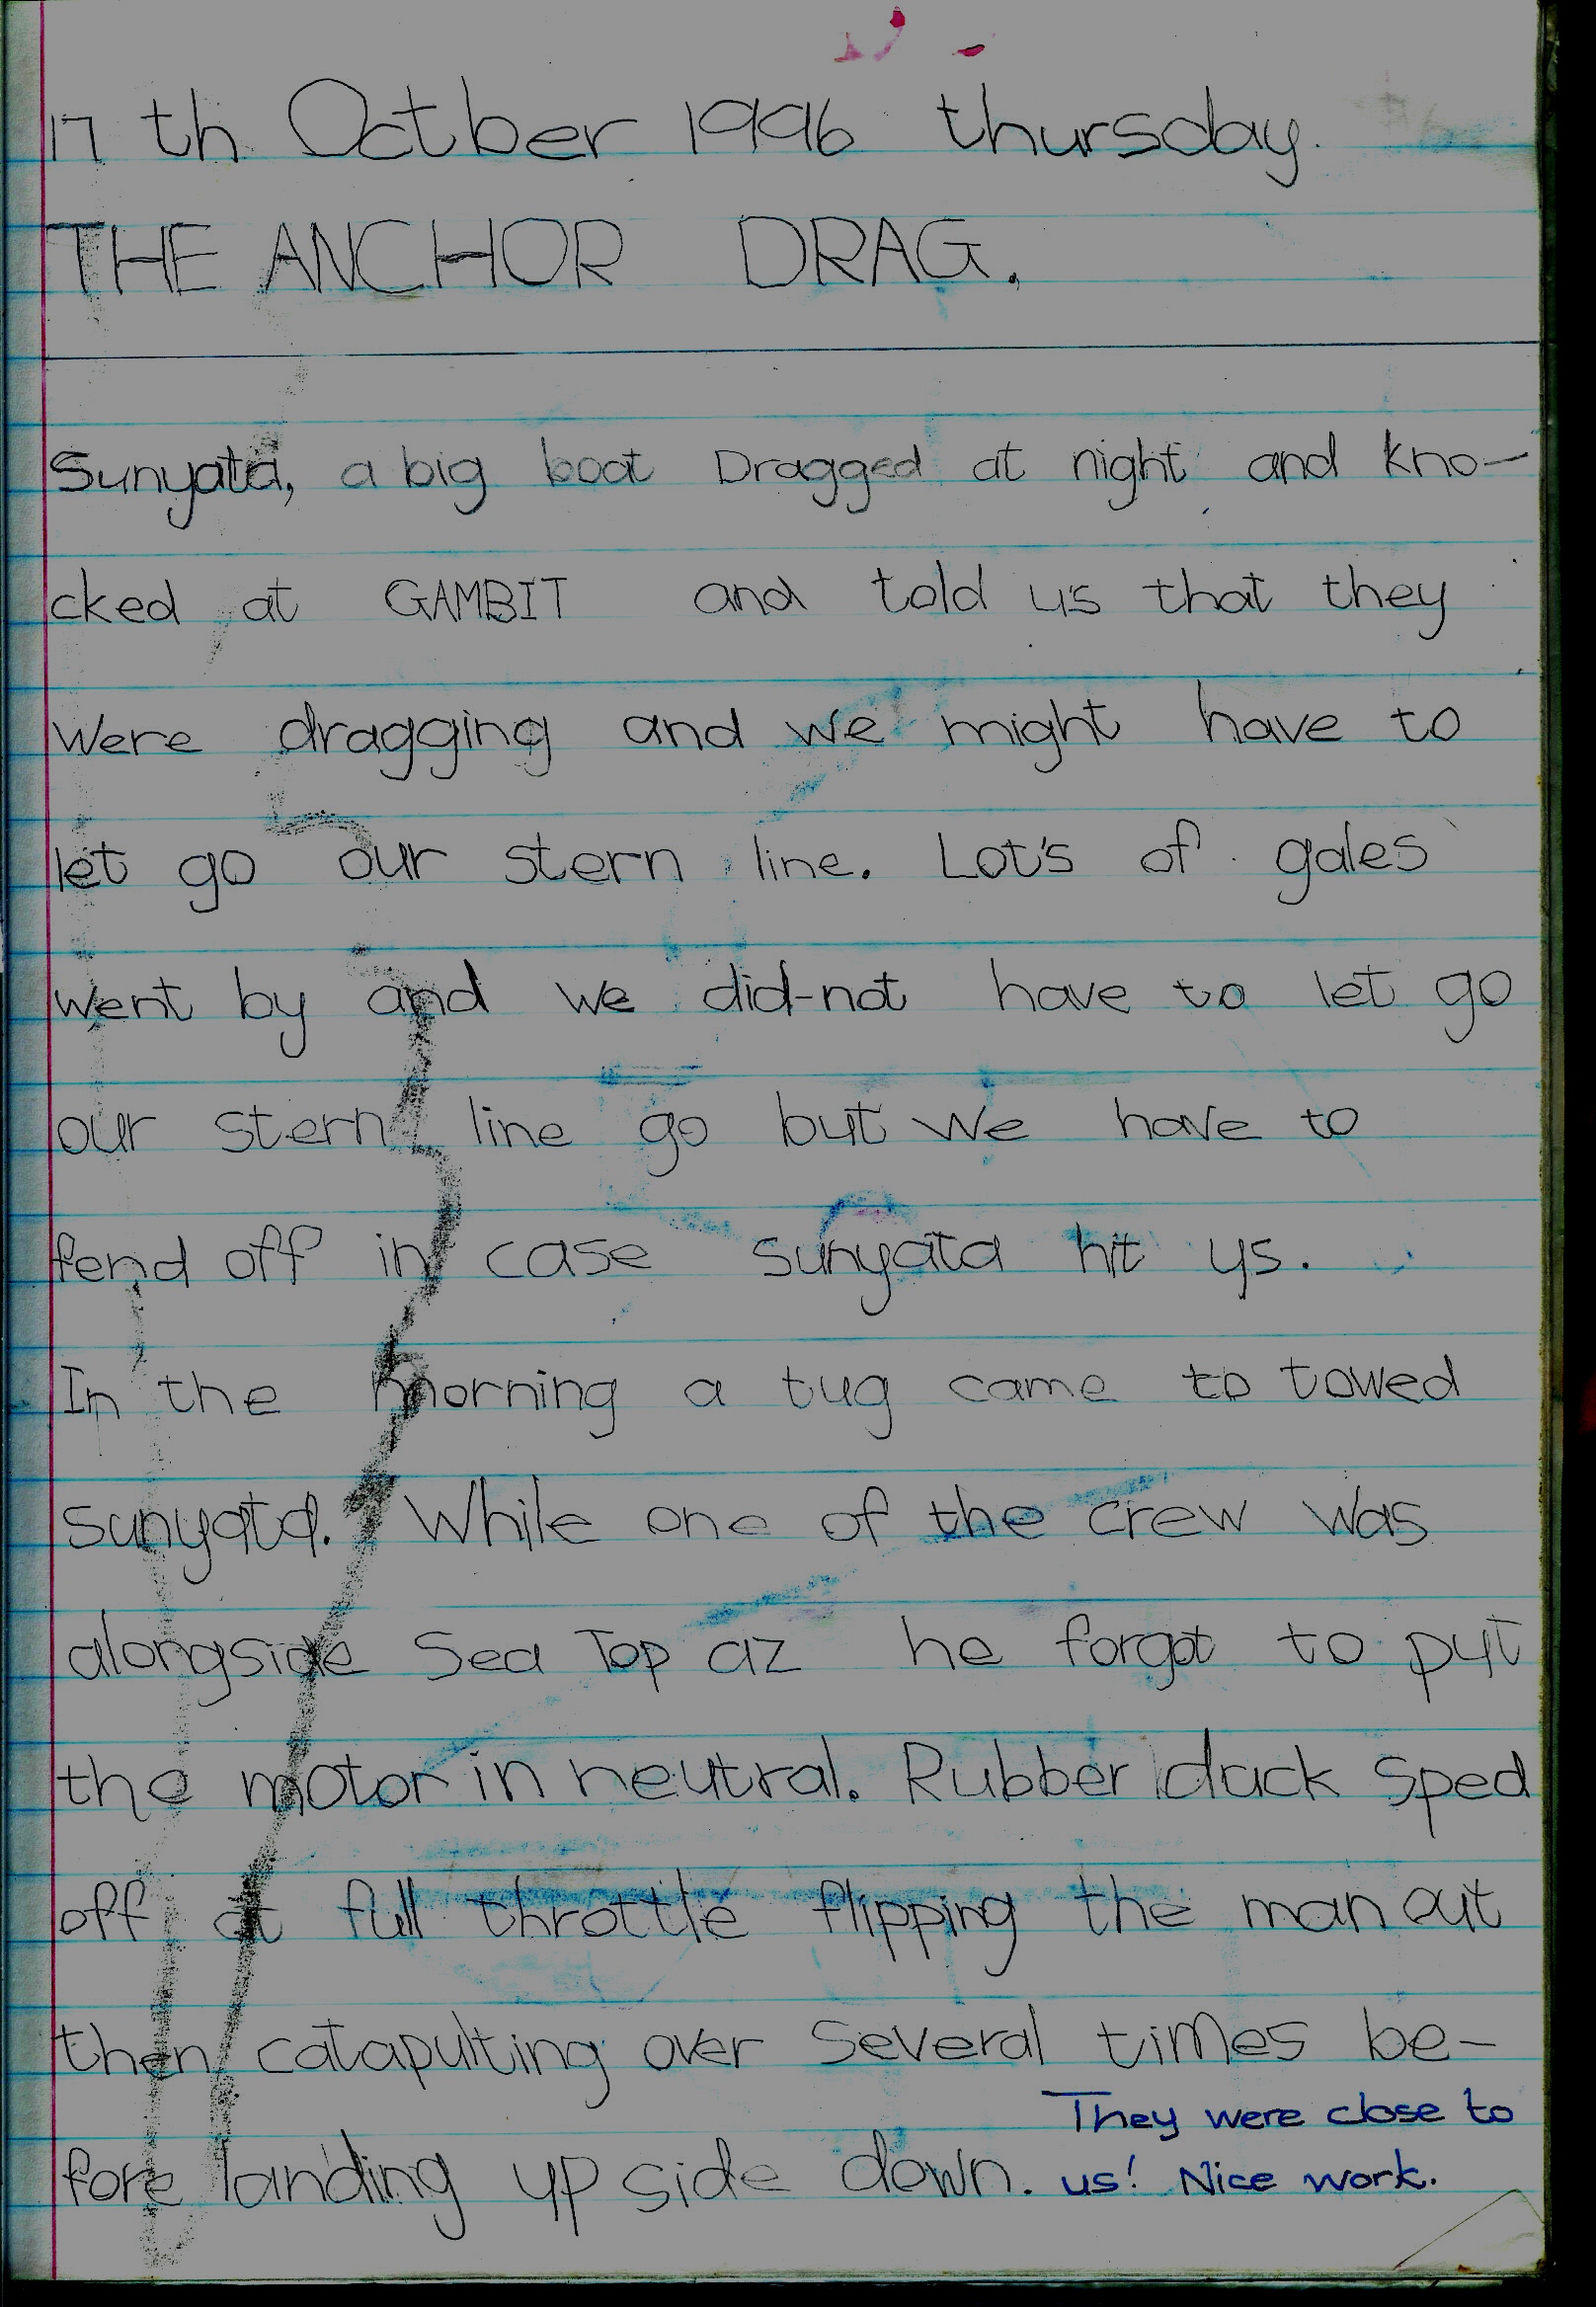 17 th Octber 1996 thursday.
THE ANCHOR DRAG.
Sunyata, a big boat Dragged at night and kno-
cked at GAMBIT and told us that they
Were dragging and we might have to
let go our stern line. Lot's of gales
went by and we did-not have to let go
our stern line go but We have to
fend off in case sunyata hit us.
In the morning a tug came to towed
sunyata. While one of the crew was
alongside Sea Top az he forgot to put
the motor in neutral. Rubber duck Sped
off at full throttle flipping the man out
then catapulting over Several times be-
They were close to
fore landing up side down. us! Nice work.